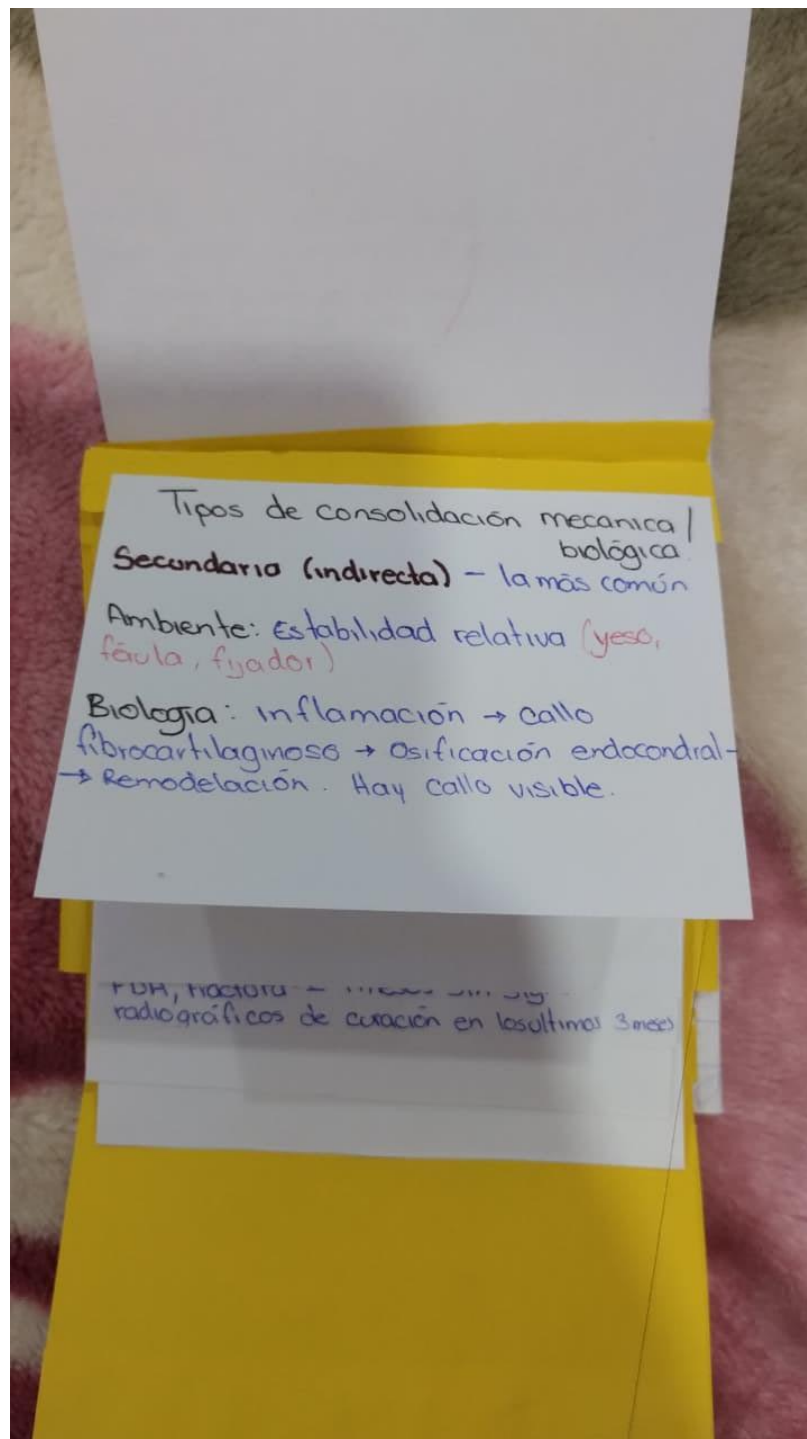 Tipos de consolidación mecanica/
biológica.
Secundario (indirecta) - la más común
Ambiente: Estabilidad relativa (yeso,
fáula, fijador)
Biología: inflamación → callo
fibrocartilaginoso → Osificación endocondral-
→ Remodelación. Hay callo visible.
radiográficos de curación en los ultimos 3 meses